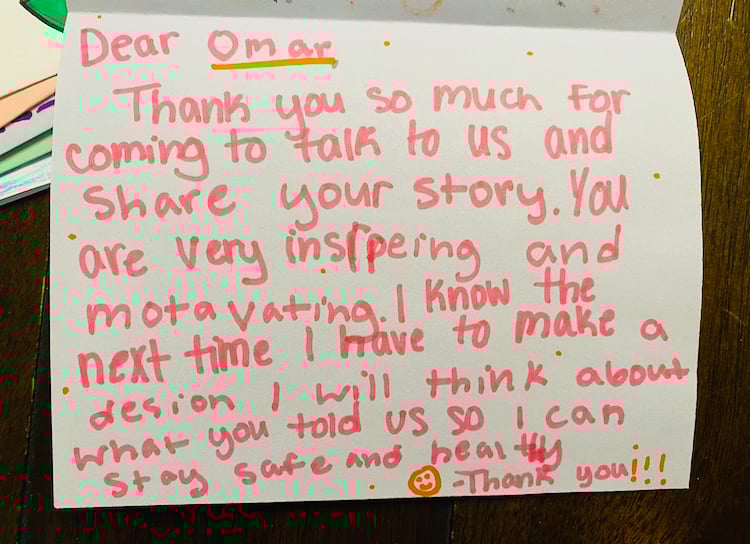 Dear Omar
Thank you so much for
coming to talk to us and
share your story. You
are very insipeing and
motavating. I know the
next time I have to make a
desion I will think about
what you told us so I can
stay safe and healthy
-Thank you!!!